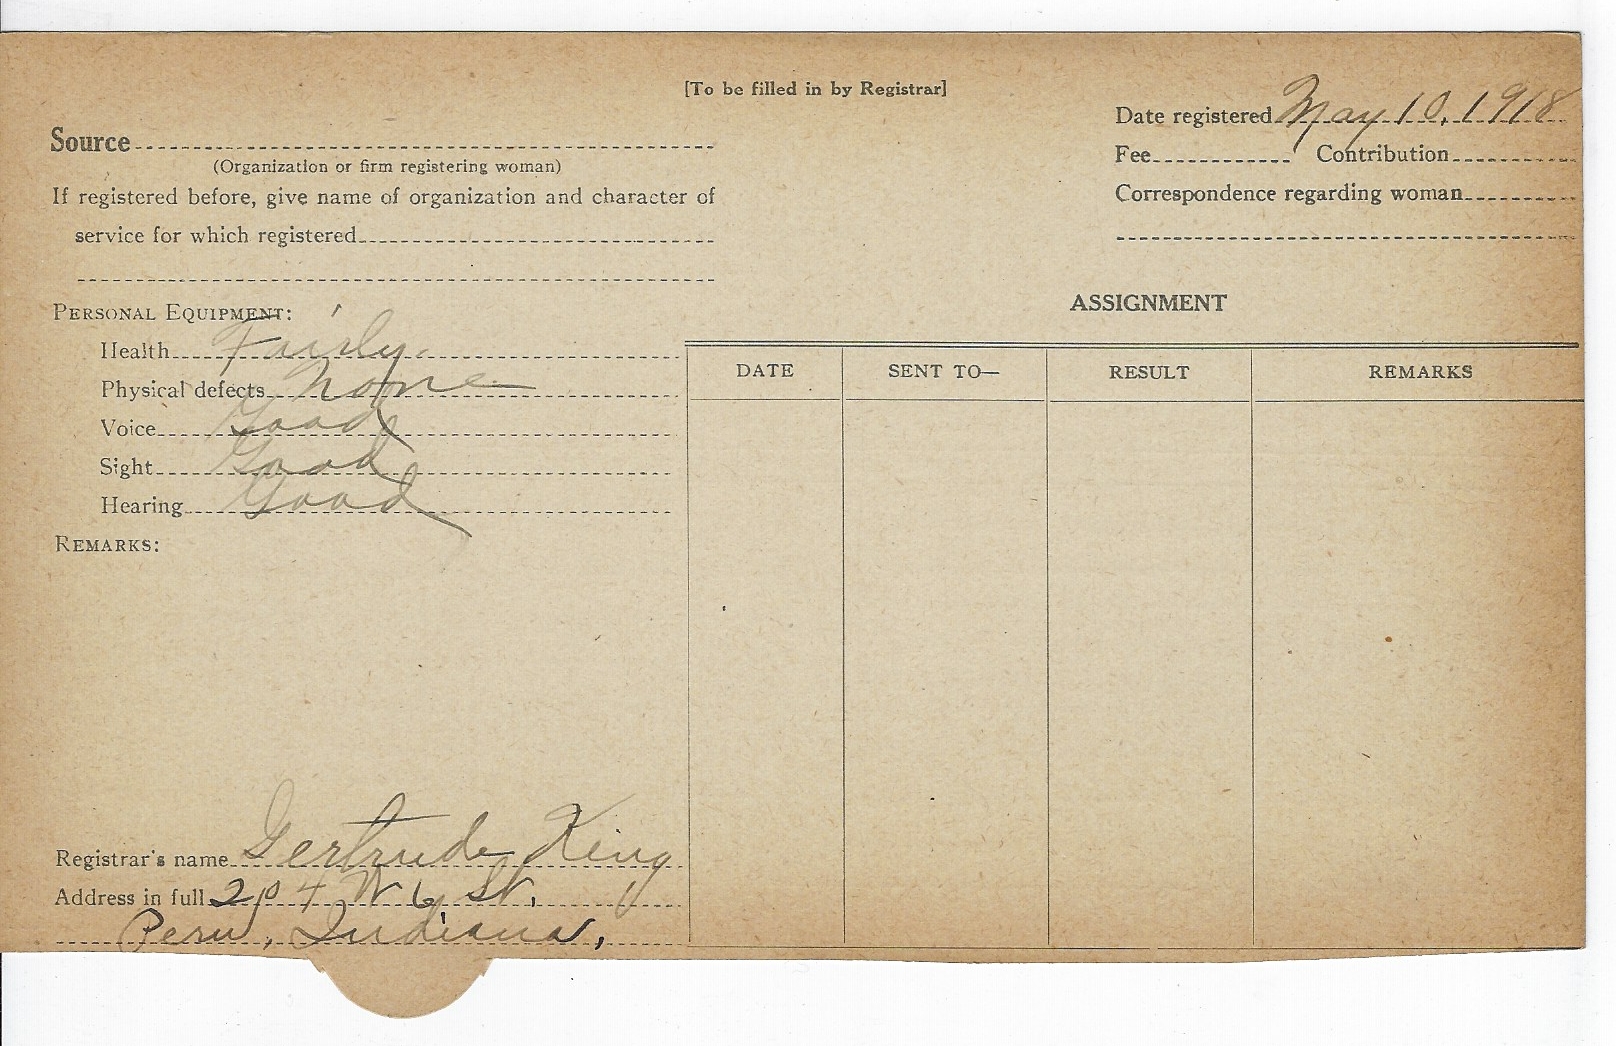 [To be filled in by Registrar]
Date registered May 10, 1918
Source
(Organization or firm registering woman)
Fee Contribution
If registered before, give name of organization and character of
service for which registered
Correspondence regarding woman
PERSONAL EQUIPMENT:
Health Fairly.
Physical defects None
Voice Good
Sight Good
Hearing Good
REMARKS:
ASSIGNMENT
DATE SENT TO— RESULT REMARKS
Registrar's name Gertrude King
Address in full 204 W 6 St.
Peru, Indiana,